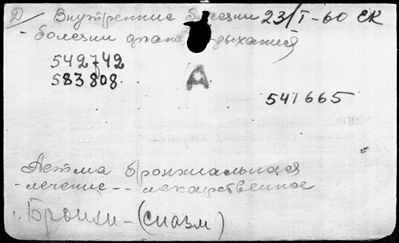 Д) Внутренние болезни 23/I-60 СК
- болезни органов дыхания
542742
583808
А
541665
Астма бронхиальная
- лечение -- лекарственное
Бронхи - (спазм)